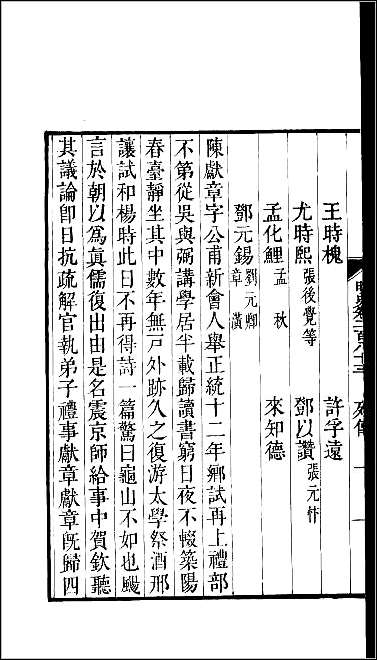 王時槐　許孚遠
尤時熙 張後覺等　鄧以讚 張元忭
孟化鯉 孟秋　來知德
鄧元錫 劉元卿 章潢
陳獻章字公甫新會人舉正統十二年鄉試再上禮部
不第從吳與弼講學居半載歸讀書窮日夜不輟築陽
春臺靜坐其中數年無戶外跡久之復游太學祭酒邢
讓試和楊時此日不再得詩一篇驚曰龜山不如也颺
言於朝以爲眞儒復出由是名震京師給事中賀欽聽
其議論卽日抗疏解官執弟子禮事獻章獻章旣歸四